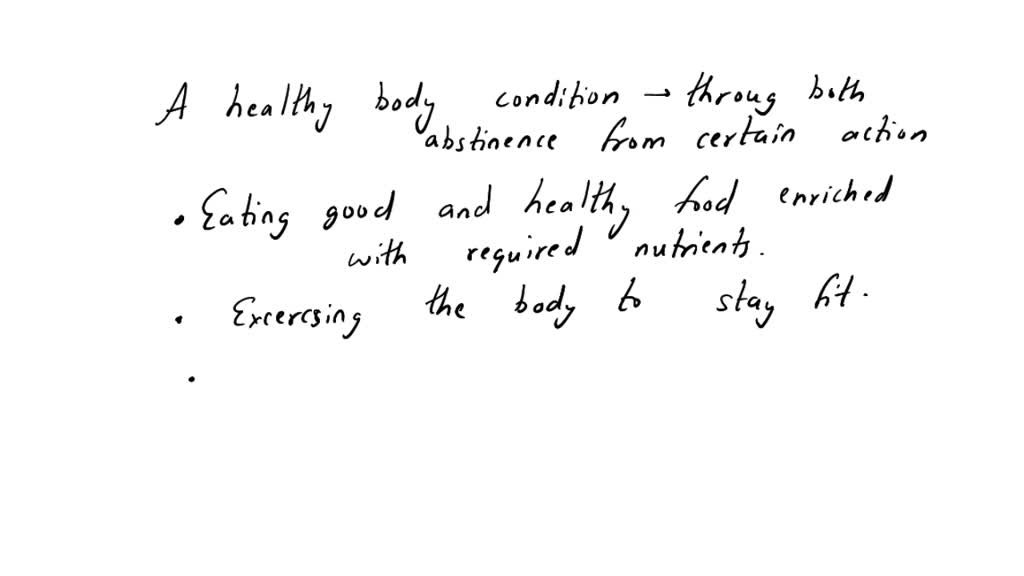 A healthy body condition → throug both
abstinence from certain action
• Eating good and healthy food enriched
with required nutrients.
• Excercsing the body to stay fit.
•